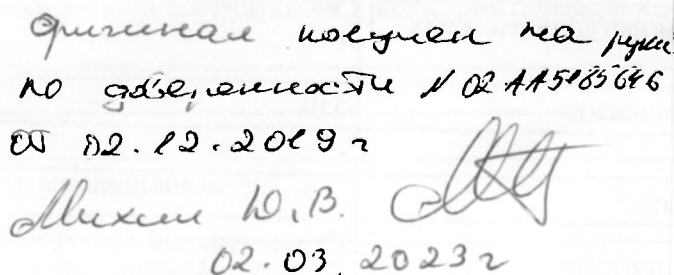 оригинал получен на руки
по доверенности N 02 АА5185646
от 02.12.2019 г
Михин Ю.В.
02.03.2023 г